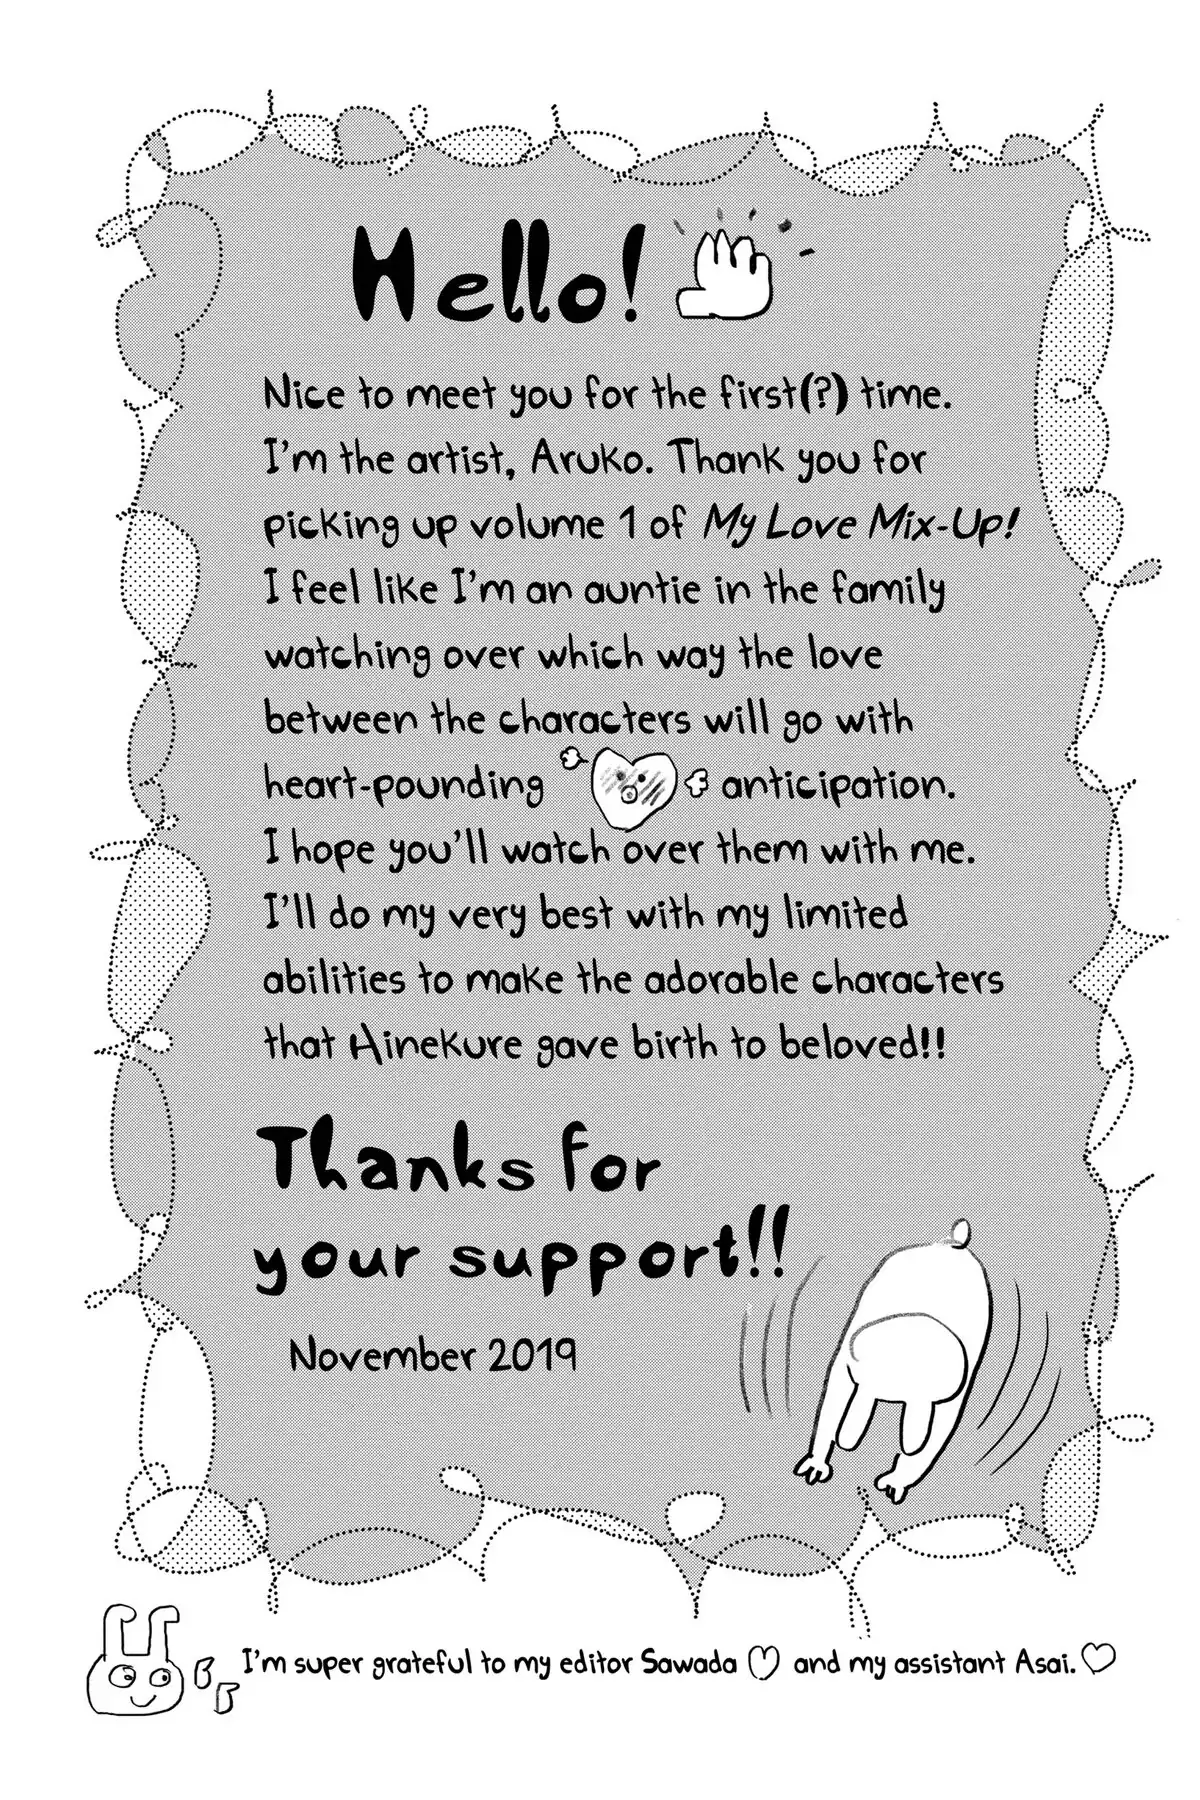 Hello!
Nice to meet you for the first(?) time.
I'm the artist, Aruko. Thank you for
picking up volume 1 of My Love Mix-Up!
I feel like I'm an auntie in the family
watching over which way the love
between the characters will go with
heart-pounding anticipation.
I hope you'll watch over them with me.
I'll do my very best with my limited
abilities to make the adorable characters
that Hinekure gave birth to beloved!!
Thanks for
your support!!
November 2019
I'm super grateful to my editor Sawada ♡ and my assistant Asai. ♡